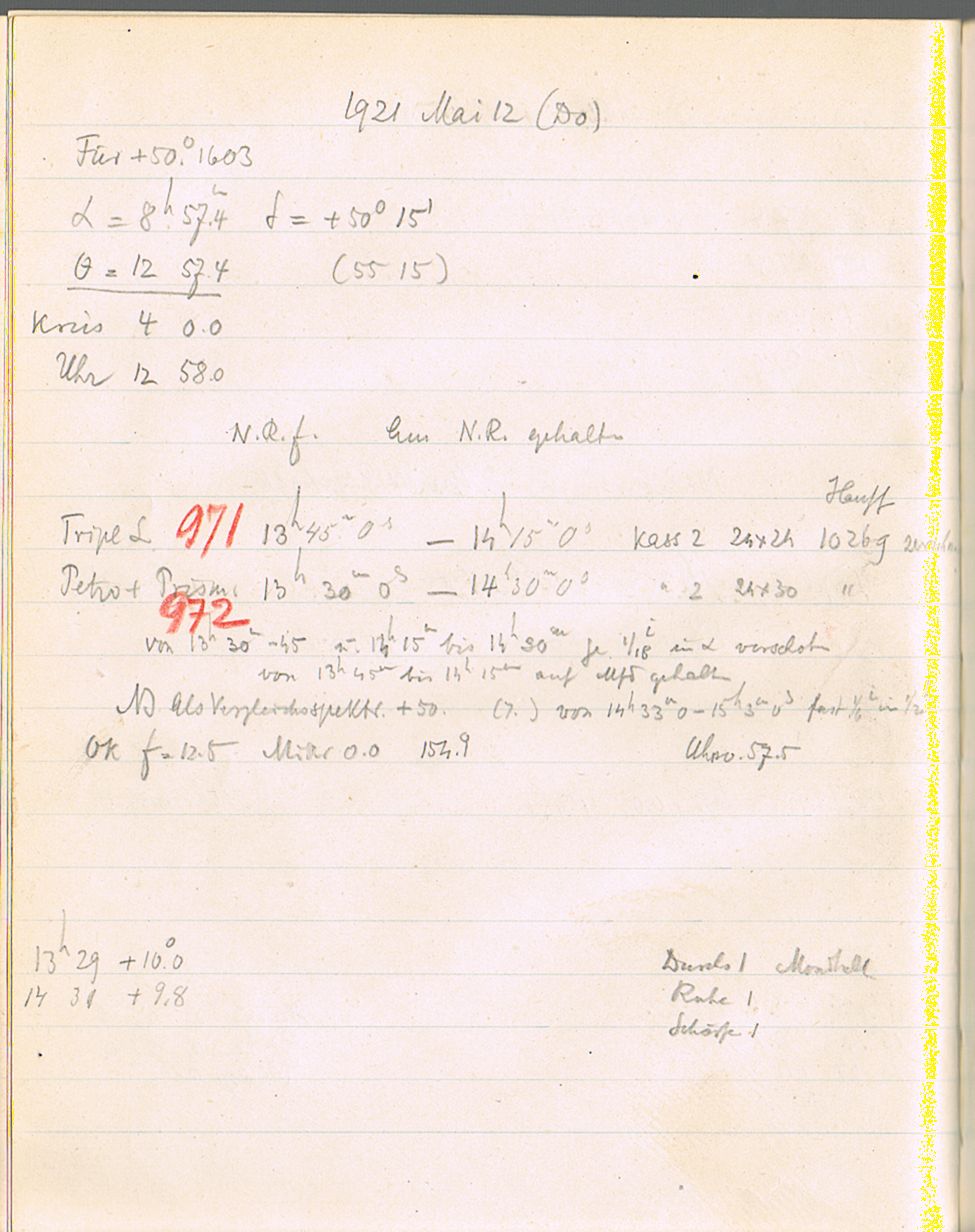 1921 Mai 12 (Do)
Für +50.°1603
α = 8ʰ 57.ᵐ4 δ = +50° 15'
θ = 12 57.4 (55 15)
Kreis 4 0.0
Uhr 12 58.0
N.R.f. Am N.R. gehalten
Hauff
Triplet 971 13ʰ 45ᵐ 0ˢ — 14ʰ 15ᵐ 0ˢ Kass 2 24x24 1026g
Petz + Prisma 13ʰ 30ᵐ 0ˢ — 14ʰ 30ᵐ 0ˢ " 2 24x30 "
972
von 13ʰ 30ᵐ - 45 u. 14ʰ 15ᵐ bis 14ʰ 30ᵐ je 1/18 in α verschoben
von 13ʰ 45ᵐ bis 14ʰ 15ᵐ auf gehalten
NB als Vergleichsspektr. +50. (7.) von 14ʰ 33ᵐ 0 - 15ʰ 3ᵐ 0ˢ fast 1/6 in
OK f = 12.5 Mikr 0.0 154.9 Uhrv. 57.5
13ʰ 29 +10.°0
14 31 +9.8
Durchs 1 Mondhell
Ruhe 1
Schärfe 1